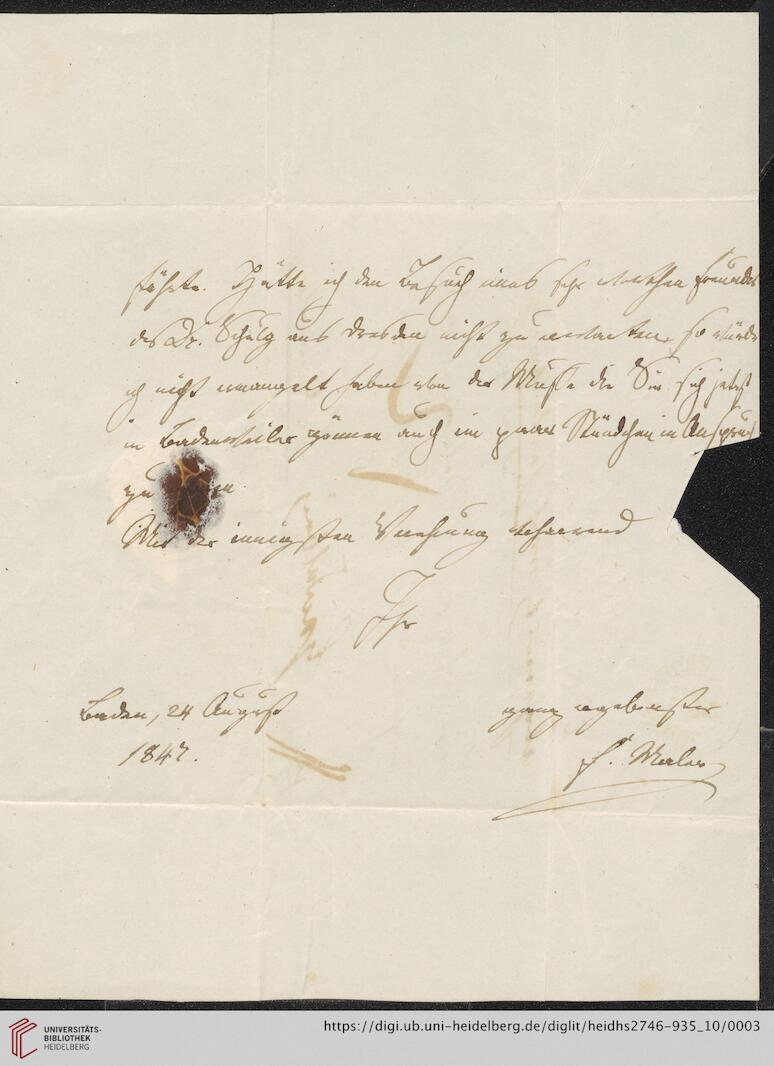 führte. Hätte ich den Besuch eines sehr werthen Freundes
des Dr. Schulz aus Dresden nicht zu erwarten, so würde
ich nicht ermangelt haben von der Muße die Sie sich jetzt
in Badenweiler gönnen auch ein paar Stündchen in Anspruch
zu
Mit der innigsten Verehrung beharrend
Ihr
Baden, 24 August
1847.
ganz ergebenster
F. Maler
UNIVERSITÄTS-
BIBLIOTHEK
HEIDELBERG
https://digi.ub.uni-heidelberg.de/diglit/heidhs2746-935_10/0003